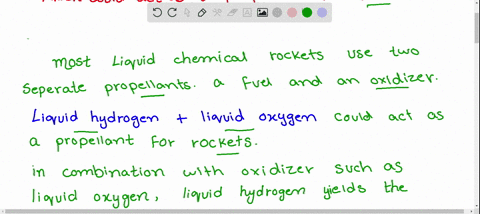 most Liquid chemical rockets use two
Seperate propellants. a fuel and an oxidizer.
Liquid hydrogen + liquid oxygen could act as
a propellant for rockets.
in combination with oxidizer such as
liquid oxygen, liquid hydrogen yields the